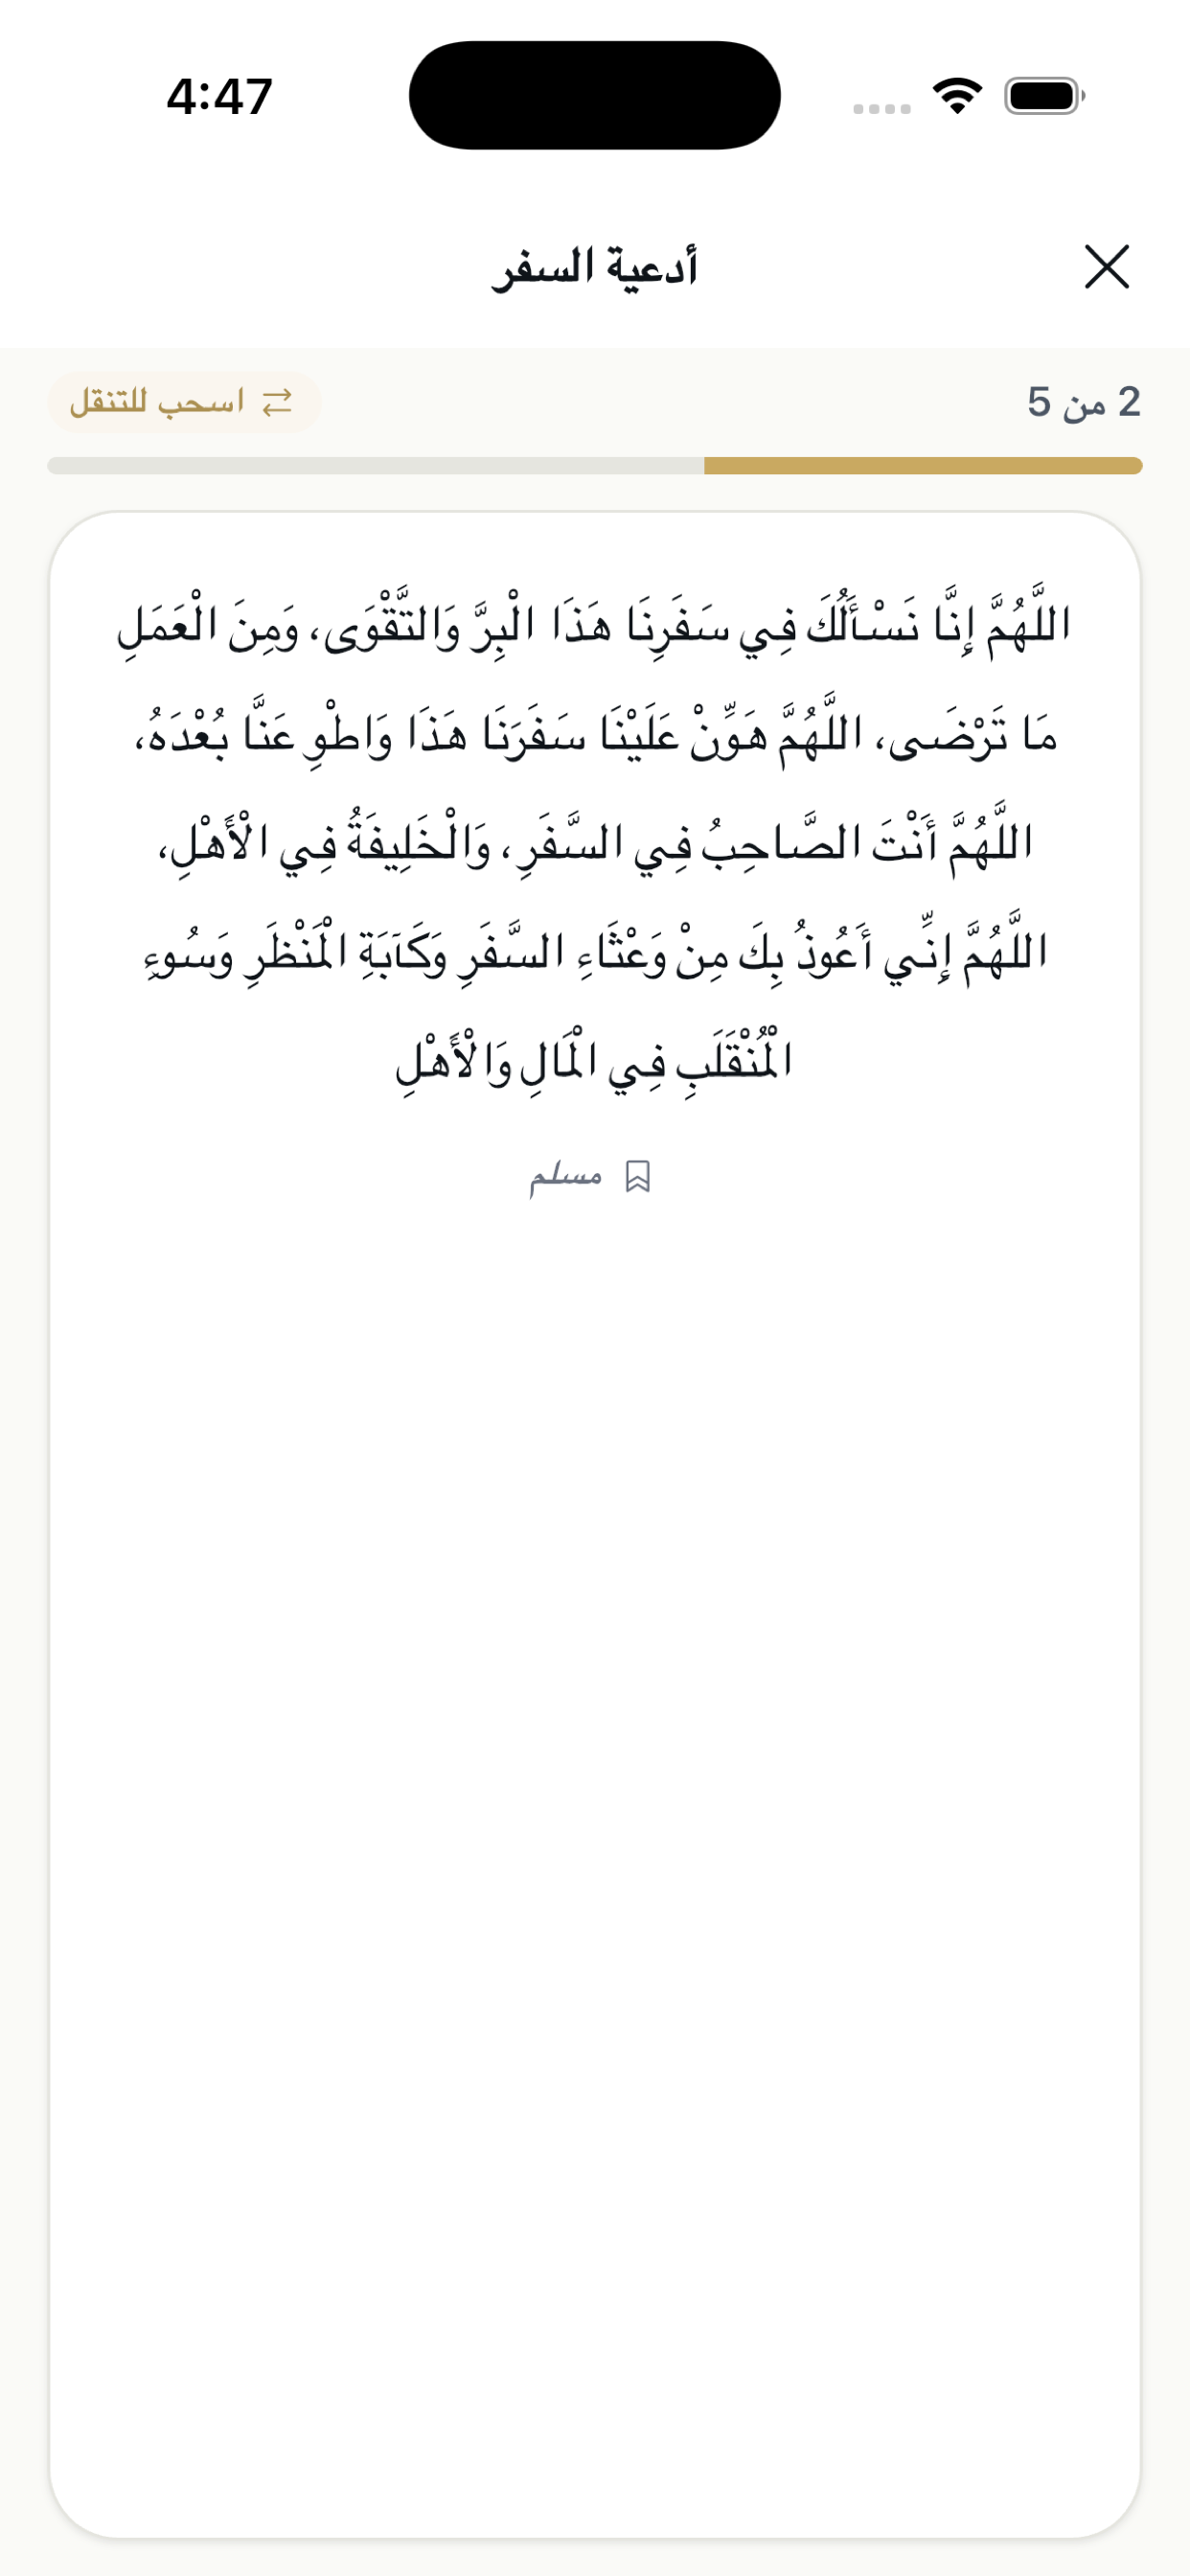 4:47
أدعية السفر
2 من 5
اسحب للتنقل
اللَّهُمَّ إِنَّا نَسْأَلُكَ فِي سَفَرِنَا هَذَا الْبِرَّ وَالتَّقْوَى، وَمِنَ الْعَمَلِ
مَا تَرْضَى، اللَّهُمَّ هَوِّنْ عَلَيْنَا سَفَرَنَا هَذَا وَاطْوِ عَنَّا بُعْدَهُ،
اللَّهُمَّ أَنْتَ الصَّاحِبُ فِي السَّفَرِ، وَالْخَلِيفَةُ فِي الْأَهْلِ،
اللَّهُمَّ إِنِّي أَعُوذُ بِكَ مِنْ وَعْثَاءِ السَّفَرِ وَكَآبَةِ الْمَنْظَرِ وَسُوءِ
الْمُنْقَلَبِ فِي الْمَالِ وَالْأَهْلِ
مسلم